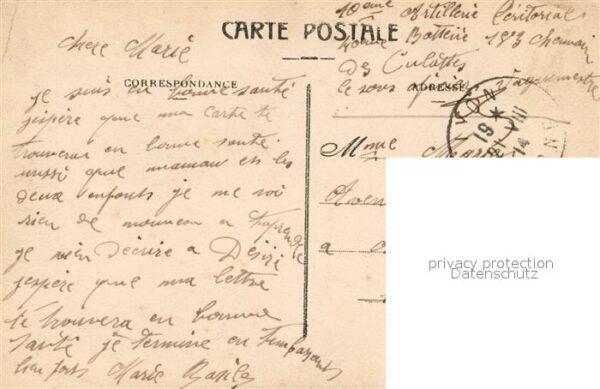 CARTE POSTALE
10eme Artillerie territorial
40eme Batterie 183 chemin
des Culattes
le sous
CORRESPONDANCE
ADRESSE
chere Marie
je suis en bonne santé
jespère que ma carte te
trouvera en bonne santé
aussi que maman et les
deux enfants je ne voi
rien de nouveau a taprendre
je vien décrire a Désiré
jespère que ma lettre
te trouvera en bonne
santé je termine en tembrassant
bien fort Marie
LYON
19 *
14
Mme
Aven
a
privacy protection
Datenschutz